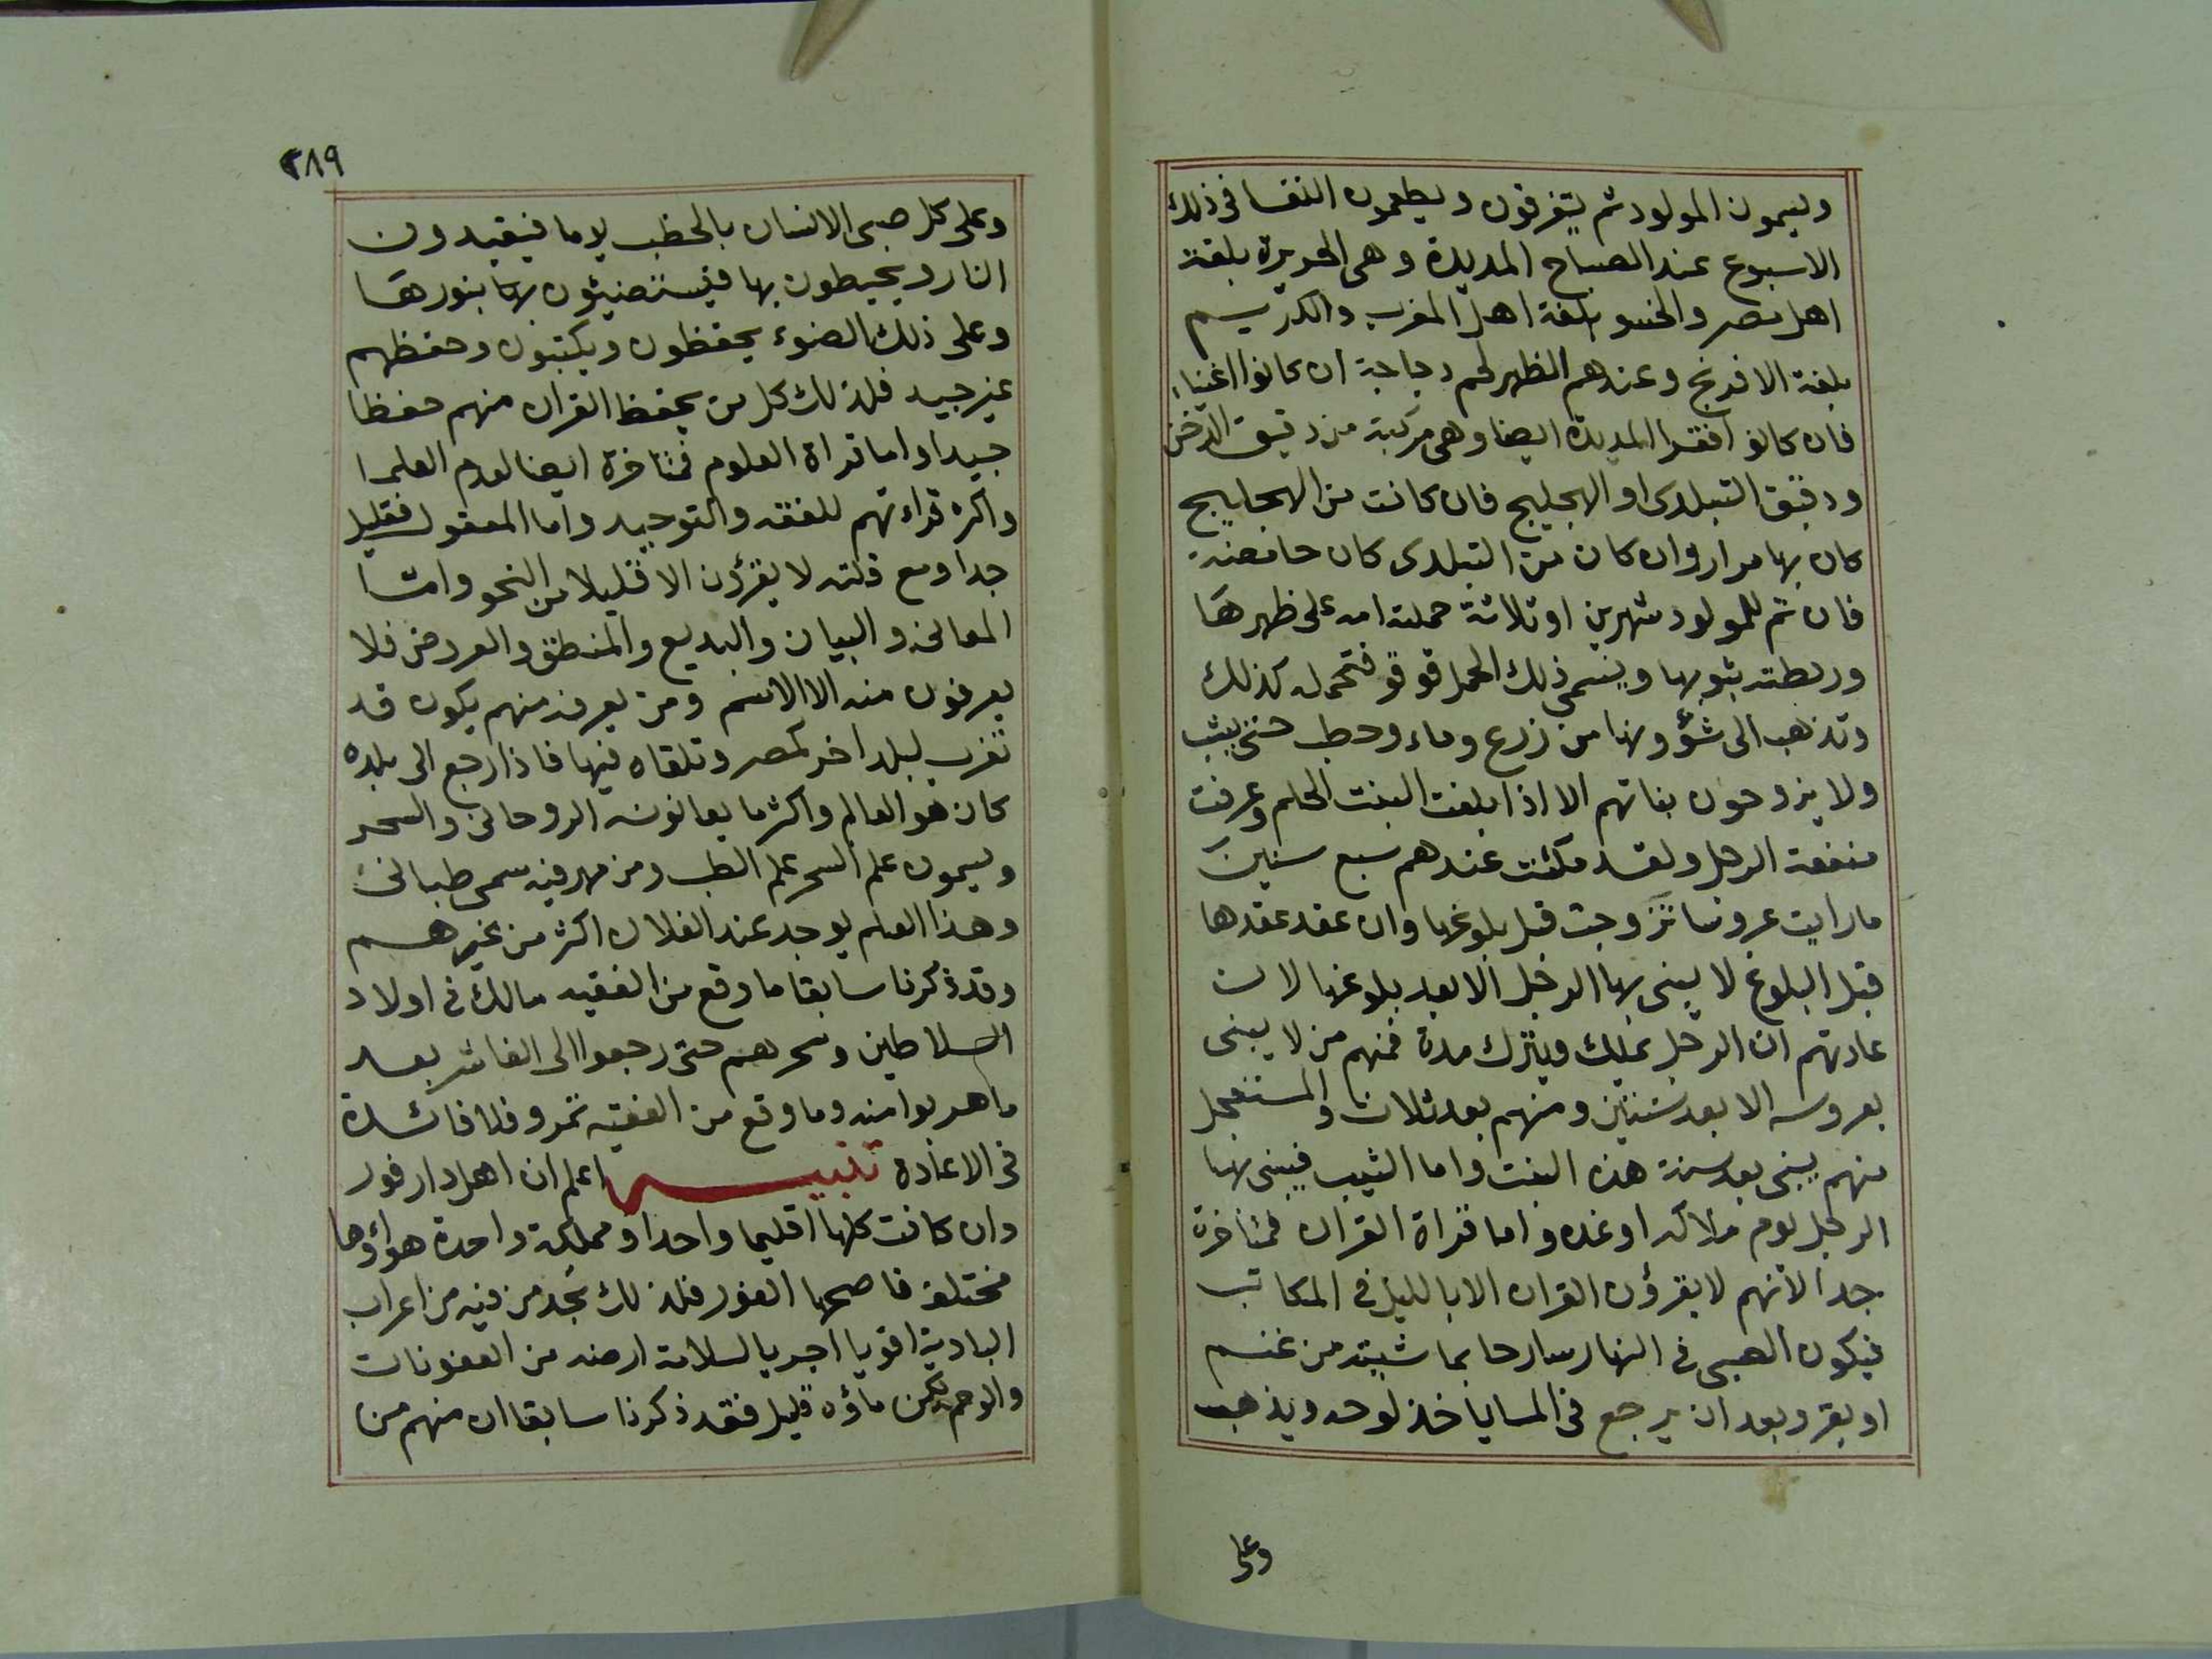 ويسمون المولود ثم يتفرقون ويطعمون النفسا فى ذلك
الاسبوع عند الصباح المديدة وهى الحريرة بلغة
اهل مصر والخسو بلغة اهل المغرب والكريم
بلغة الافرنج وعندهم الظهر لحم دجاجة ان كانوا اغنياء
فان كانوا افقرا المديدة ايضا وهى مركبة من دقيق الدخن
ودقيق التبلدى او الهجليج فان كانت من الهجليج
كان بها مرار وان كان من التبلدى كان حامضة
فان تم للمولود شهرين او ثلاثة حملته امه على ظهرها
وربطته بثوبها ويسمى ذلك الحمل قوقو فتحمله كذلك
وتذهب الى شؤونها من زرع وماء وحطب حتى يشب
ولا يزوجون بناتهم الا اذا بلغت البنت الحلم وعرفت
منفعة الرجل ولقد مكثت عندهم سبع سنين
ما رايت عروسا تزوجت قبل بلوغها وان عقد عقدها
قبل البلوغ لا يبنى بها الرجل الا بعد بلوغها لان
عادتهم ان الرجل يملك ويترك مدة فمنهم من لا يبنى
بعروسه الا بعد سنتين ومنهم بعد ثلاث والمستعجل
منهم يبنى بعد سنة هذه البنت واما الثيب فيبنى بها
الرجل يوم ملاكه او غده واما قراة القران فمتاخرة
جدا لانهم لا يقرؤن القران الا بالليل فى المكاتب
فيكون الصبى فى النهار سارحا بماشيته من غنم
او بقر وبعد ان يرجع فى المسا ياخذ لوحه ويذهب
وعلى
٢٨٩
وعلى كل صبى الانسان بالحطب يوما فيقيدون
النار ويحيطون بها فيستضيئون بها بنورها
وعلى ذلك الضوء يحفظون ويكتبون وحفظهم
غير جيد فلذلك كل من يحفظ القران منهم حفظا
جيدا واما قراة العلوم فمتاخرة ايضا لعدم العلما
واكثر قراءتهم للفقه والتوحيد واما المعقول فقليل
جدا ومع قلته لا يقرؤن الا قليلا من النحو واما
المعانى والبيان والبديع والمنطق والعروض فلا
يعرفون منه الا الاسم ومن يعرفه منهم يكون قد
تغرب لبلد اخر كمصر وتلقاه فيها فاذا رجع الى بلده
كان هو العالم واكثر ما يعانونه الروحانى والسحر
ويسمون علم السحر علم الطب ومن مهر فيه سمى طبابى
وهذا العلم يوجد عند الفلان اكثر من غيرهم
وقد ذكرنا سابقا ما وقع من الفقيه مالك فى اولاد
السلاطين وسحرهم حتى رجعوا الى الفاشر بعد
ما هربوا منه وما وقع من الفقيه تمرو فلا فائدة
فى الاعادة تنبيه اعلم ان اهل دار فور
وان كانت كلها اقليما واحدا ومملكة واحدة هواؤها
مختلف فاصحها الغور فلذلك تجد من فيه من اعراب
البادية اقويا اجريا لسلامة ارضه من العفونات
والوخم لكن ماؤه قليل فقد ذكرنا سابقا ان منهم من